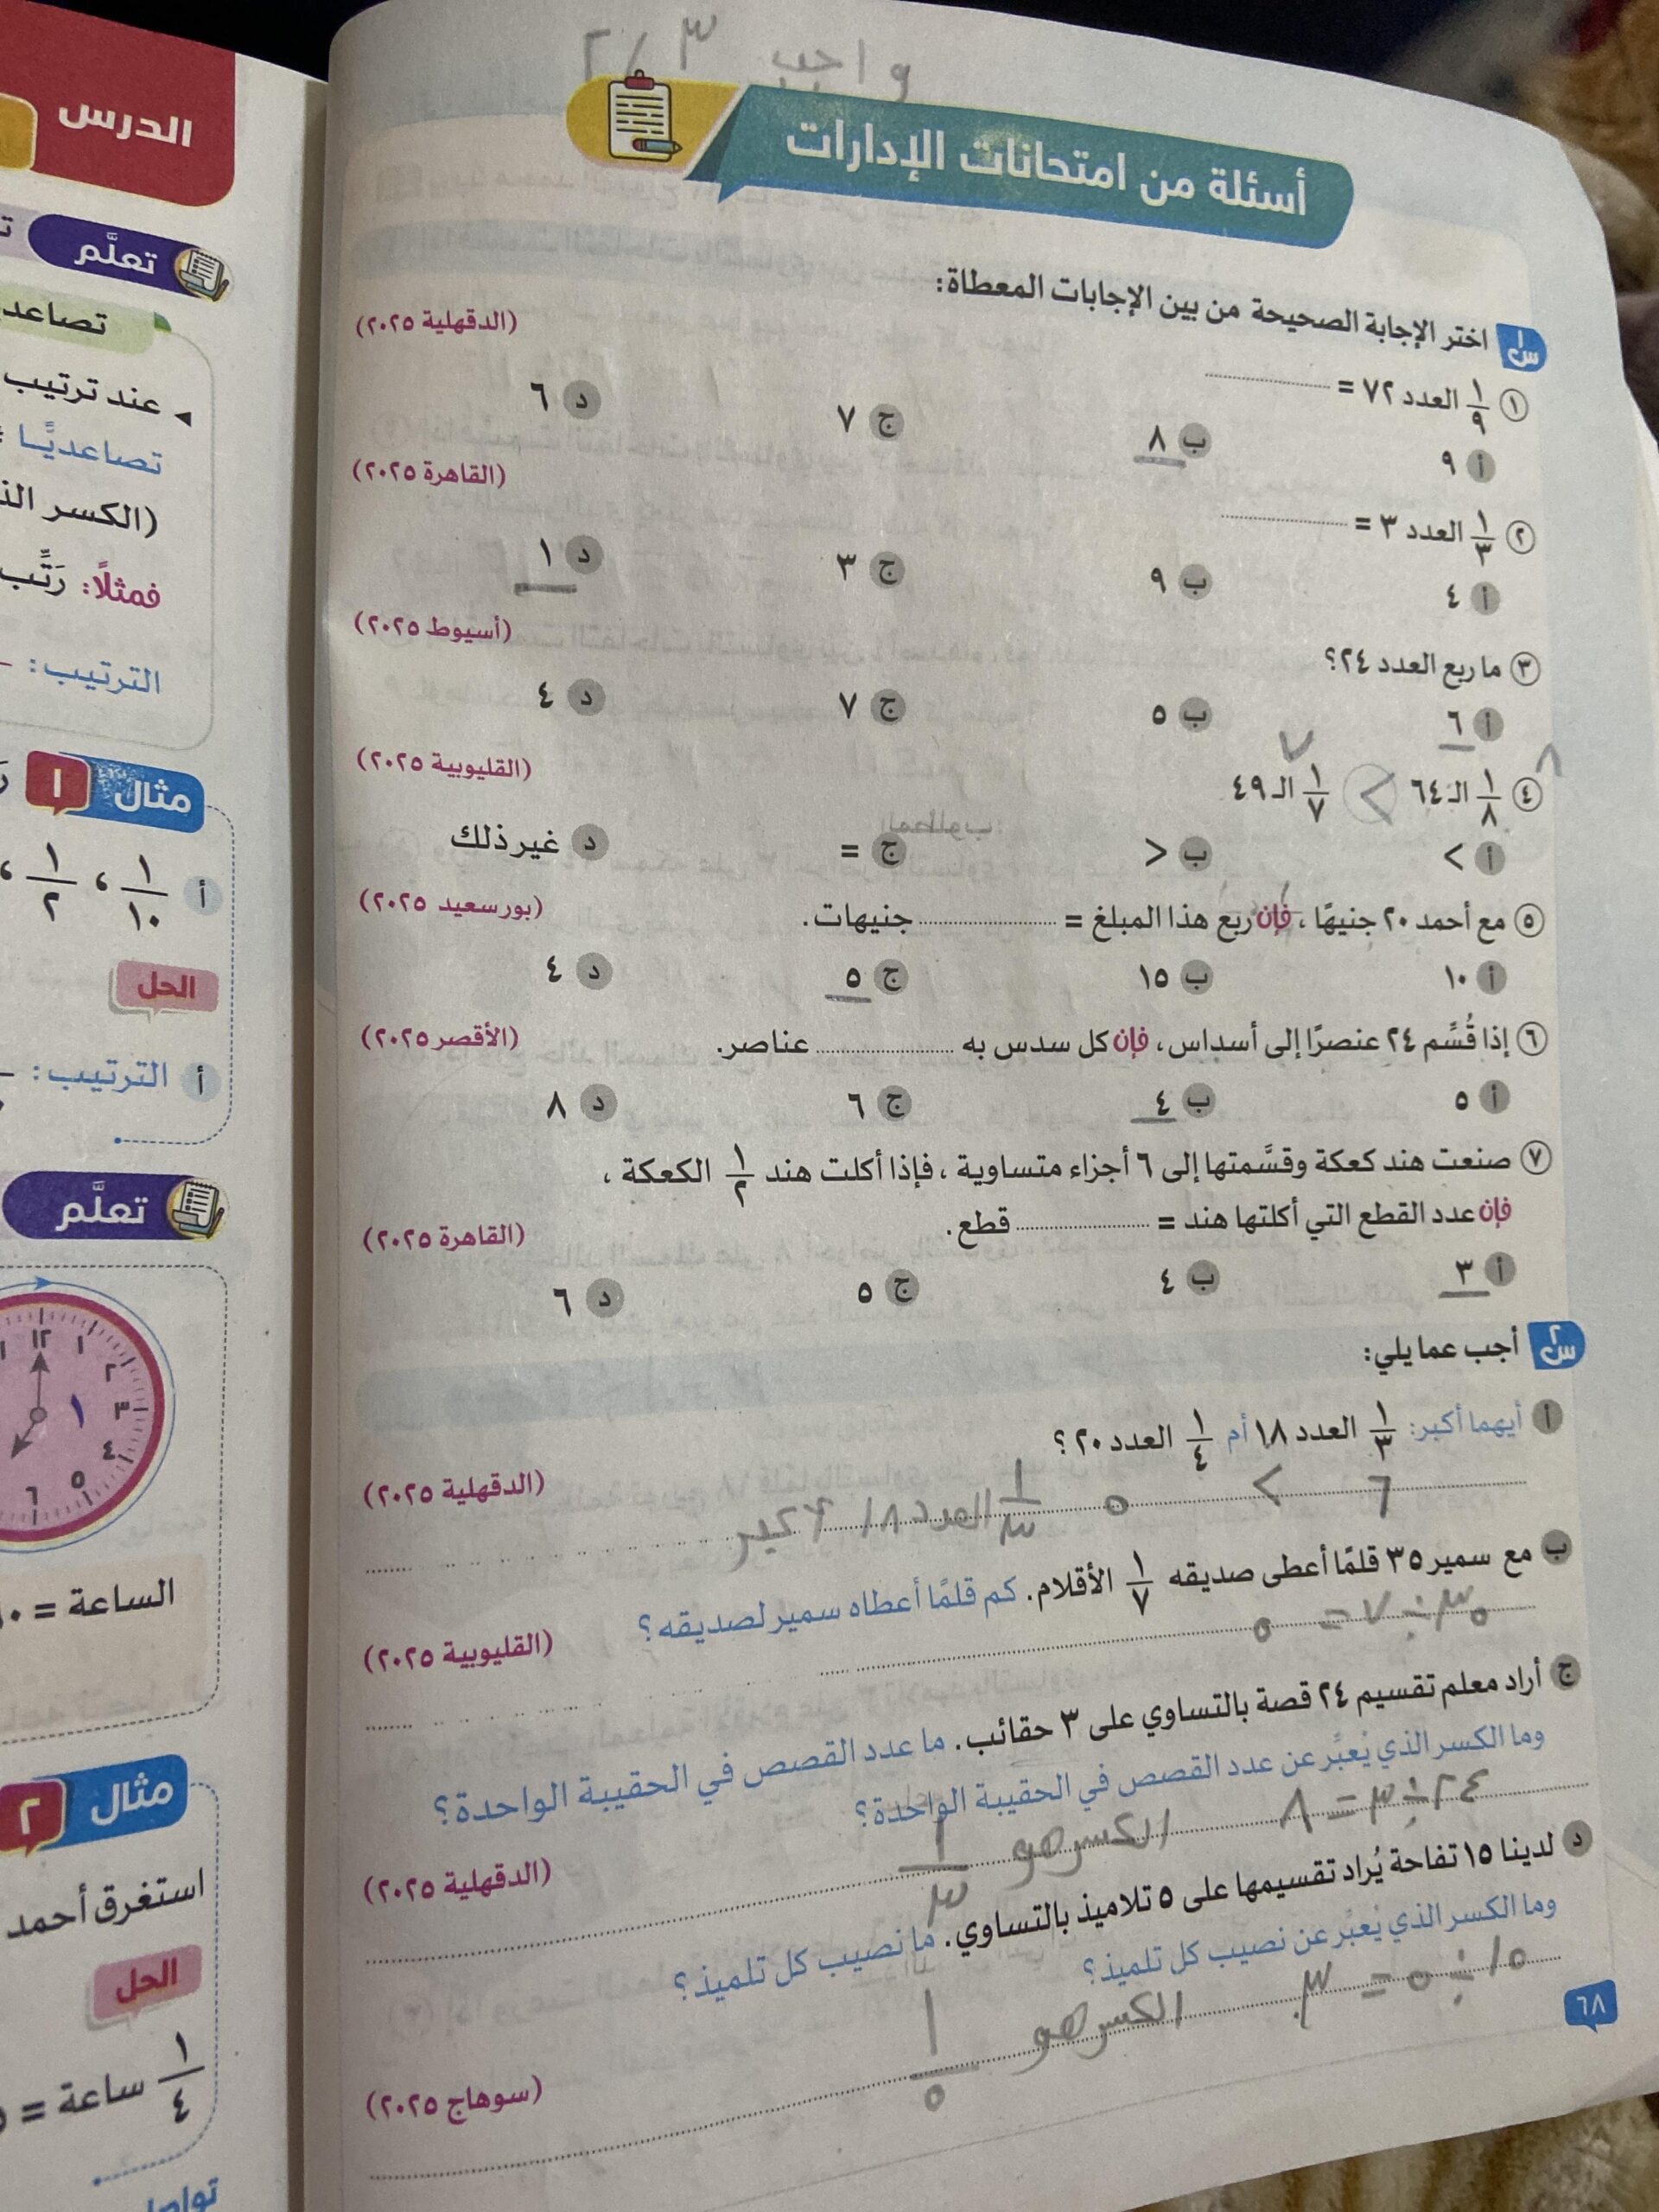 واجب ٣ / ٢
أسئلة من امتحانات الإدارات
س١ اختر الإجابة الصحيحة من بين الإجابات المعطاة:
١ ١/٩ العدد ٧٢ = ............ (الدقهلية ٢٠٢٥)
أ ٩ ب ٨ ج ٧ د ٦
٢ ١/٣ العدد ٣ = ............ (القاهرة ٢٠٢٥)
أ ٤ ب ٩ ج ٣ د ١
٣ ما ربع العدد ٢٤؟ (أسيوط ٢٠٢٥)
أ ٦ ب ٥ ج ٧ د ٤
٨ ٧
٤ ١/٨ الـ ٦٤ > ١/٧ الـ ٤٩ (القليوبية ٢٠٢٥)
أ > ب < ج = د غير ذلك
٥ مع أحمد ٢٠ جنيهًا، فإن ربع هذا المبلغ = ............ جنيهات. (بورسعيد ٢٠٢٥)
أ ١٠ ب ١٥ ج ٥ د ٤
٦ إذا قُسِّم ٢٤ عنصرًا إلى أسداس، فإن كل سدس به ............ عناصر. (الأقصر ٢٠٢٥)
أ ٥ ب ٤ ج ٦ د ٨
٧ صنعت هند كعكة وقسَّمتها إلى ٦ أجزاء متساوية، فإذا أكلت هند ١/٢ الكعكة،
فإن عدد القطع التي أكلتها هند = ............ قطع. (القاهرة ٢٠٢٥)
أ ٣ ب ٤ ج ٥ د ٦
س٢ أجب عما يلي:
أ أيهما أكبر: ١/٣ العدد ١٨ أم ١/٤ العدد ٢٠؟ (الدقهلية ٢٠٢٥)
٦ > ٥ ١/٣ العدد ١٨
ب مع سمير ٣٥ قلمًا أعطى صديقه ١/٧ الأقلام. كم قلمًا أعطاه سمير لصديقه؟ (القليوبية ٢٠٢٥)
٣٥ ÷ ٧ = ٥
ج أراد معلم تقسيم ٢٤ قصة بالتساوي على ٣ حقائب. ما عدد القصص في الحقيبة الواحدة؟
وما الكسر الذي يُعبِّر عن عدد القصص في الحقيبة الواحدة؟ (الدقهلية ٢٠٢٥)
٢٤ ÷ ٣ = ٨ الكسر هو ١/٣
د لدينا ١٥ تفاحة يُراد تقسيمها على ٥ تلاميذ بالتساوي. ما نصيب كل تلميذ؟
وما الكسر الذي يُعبِّر عن نصيب كل تلميذ؟ (سوهاج ٢٠٢٥)
١٥ ÷ ٥ = ٣ الكسر هو ١/٥
٦٨
الدرس
تعلَّم
تصاعد
عند ترتيب
تصاعديًّا
(الكسر
فمثلًا: رَتِّب
الترتيب:
مثال ١
أ ١/١٠ ، ١/٢ ،
الحل
أ الترتيب:
تعلَّم
١٢ ١ ٢ ٣ ٤ ٥ ٦
١
الساعة =
مثال ٢
استغرق أحمد
الحل
١/٤ ساعة =